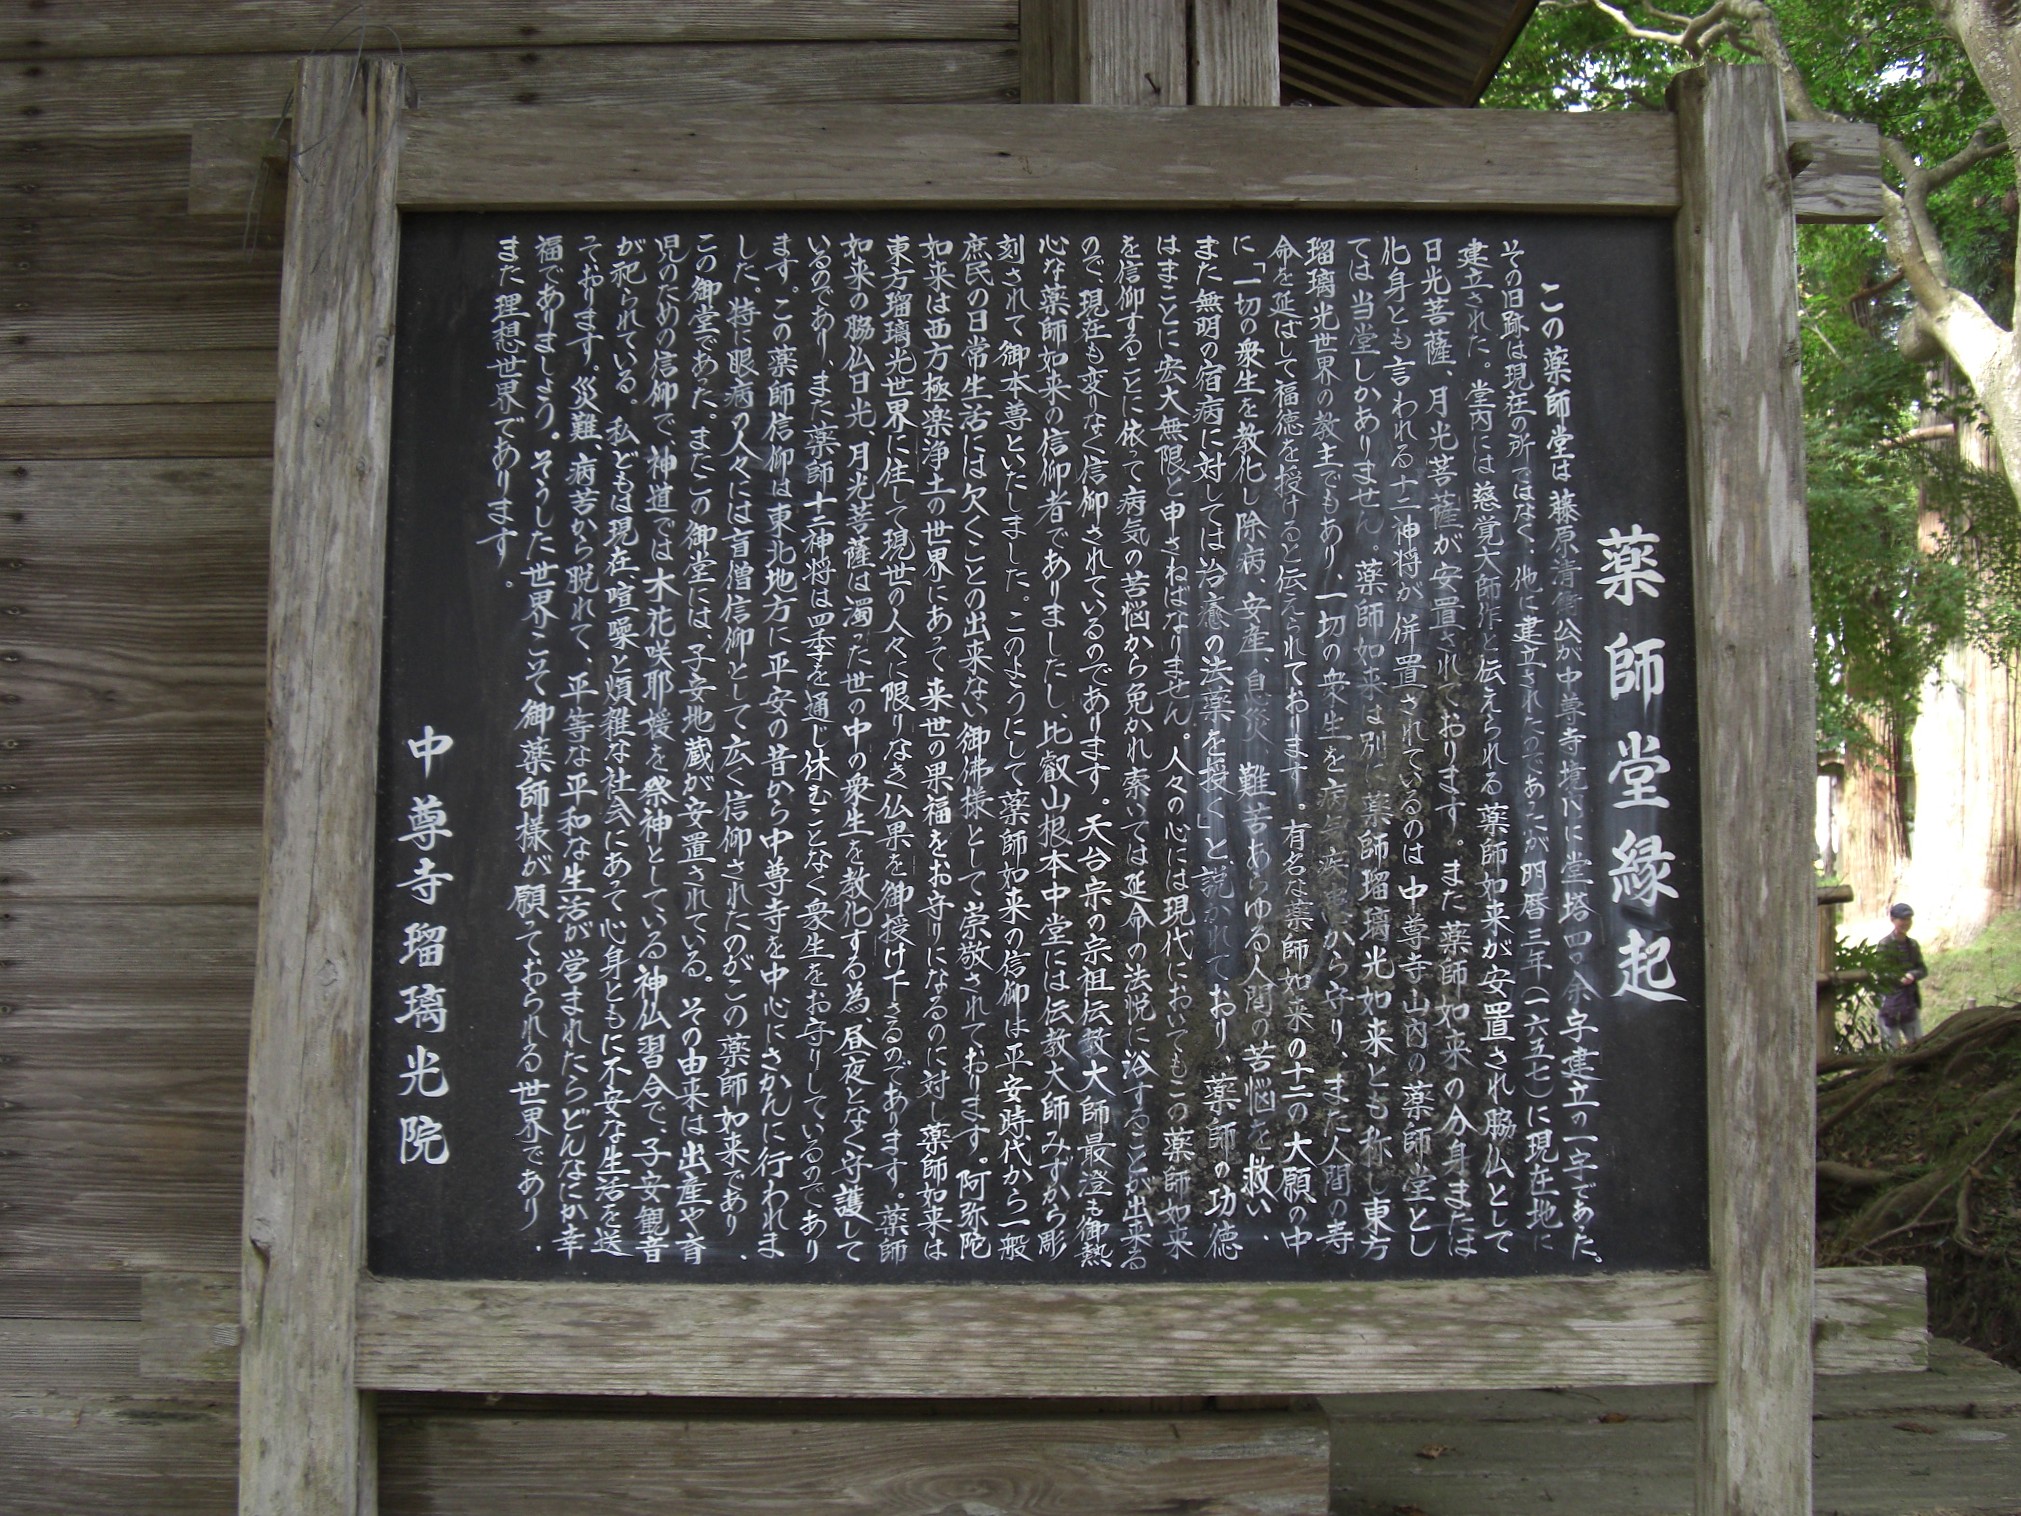 薬師堂縁起
この薬師堂は藤原清衡公が中尊寺境内に堂塔四□余宇建立の一宇であった。
その旧跡は現在の所ではなく、他に建立されたのであったが明暦三年（一六五七）に現在地に
建立された。堂内には慈覚大師作と伝えられる薬師如来が安置され脇仏として
日光菩薩、月光菩薩が安置されております。また薬師如来の分身または
化身とも言われる十二神将が併置されているのは中尊寺山内の薬師堂とし
ては当堂しかありません。薬師如来は別に薬師瑠璃光如来とも称し東方
瑠璃光世界の教主でもあり、一切の衆生を病気疾患から守り、また人間の寿
命を延ばして福徳を授けると伝えられております。有名な薬師如来の十二の大願の中
に「一切の衆生を教化し除病、安産、息災、難苦あらゆる人間の苦悩を救い、
また無明の宿病に対しては治癒の法薬を授く」と説かれており、薬師の功徳
はまことに宏大無限と申さねばなりません。人々の心には現代においてもこの薬師如来
を信仰することに依って病気の苦悩から免かれ素いては延命の法悦に浴することが出来る
ので、現在も変りなく信仰されているのであります。天台宗の宗祖伝教大師最澄も御熱
心な薬師如来の信仰者でありましたし、比叡山根本中堂には伝教大師みずから彫
刻されて御本尊といたしました。このようにして薬師如来の信仰は平安時代から一般
庶民の日常生活には欠くことの出来ない御佛様として崇敬されております。阿弥陀
如来は西方極楽浄土の世界にあって来世の果福をお守りになるのに対し薬師如来は
東方瑠璃光世界に住して現世の人々に限りなき仏果を御授け下さるのであります。薬師
如来の脇仏日光、月光菩薩は濁った世の中の衆生を教化する為、昼夜となく守護して
いるのであり、また薬師十二神将は四季を通じ休むことなく衆生をお守りしているのであり
ます。この薬師信仰は東北地方に平安の昔から中尊寺を中心にさかんに行われま
した。特に眼病の人々には盲僧信仰として広く信仰されたのがこの薬師如来であり、
この御堂であった。またこの御堂には、子安地蔵が安置されている。その由来は出産や育
児のための信仰で、神道では木花咲耶媛を祭神としている神仏習合で、子安観音
が祀られている。私どもは現在、喧噪と煩雑な社会にあって心身ともに不安な生活を送
ております。災難、病苦から脱れて、平等な平和な生活が営まれたらどんなにか幸
福でありましょう。そうした世界こそ御薬師様が願っておられる世界であり、
また理想世界であります。
中尊寺瑠璃光院